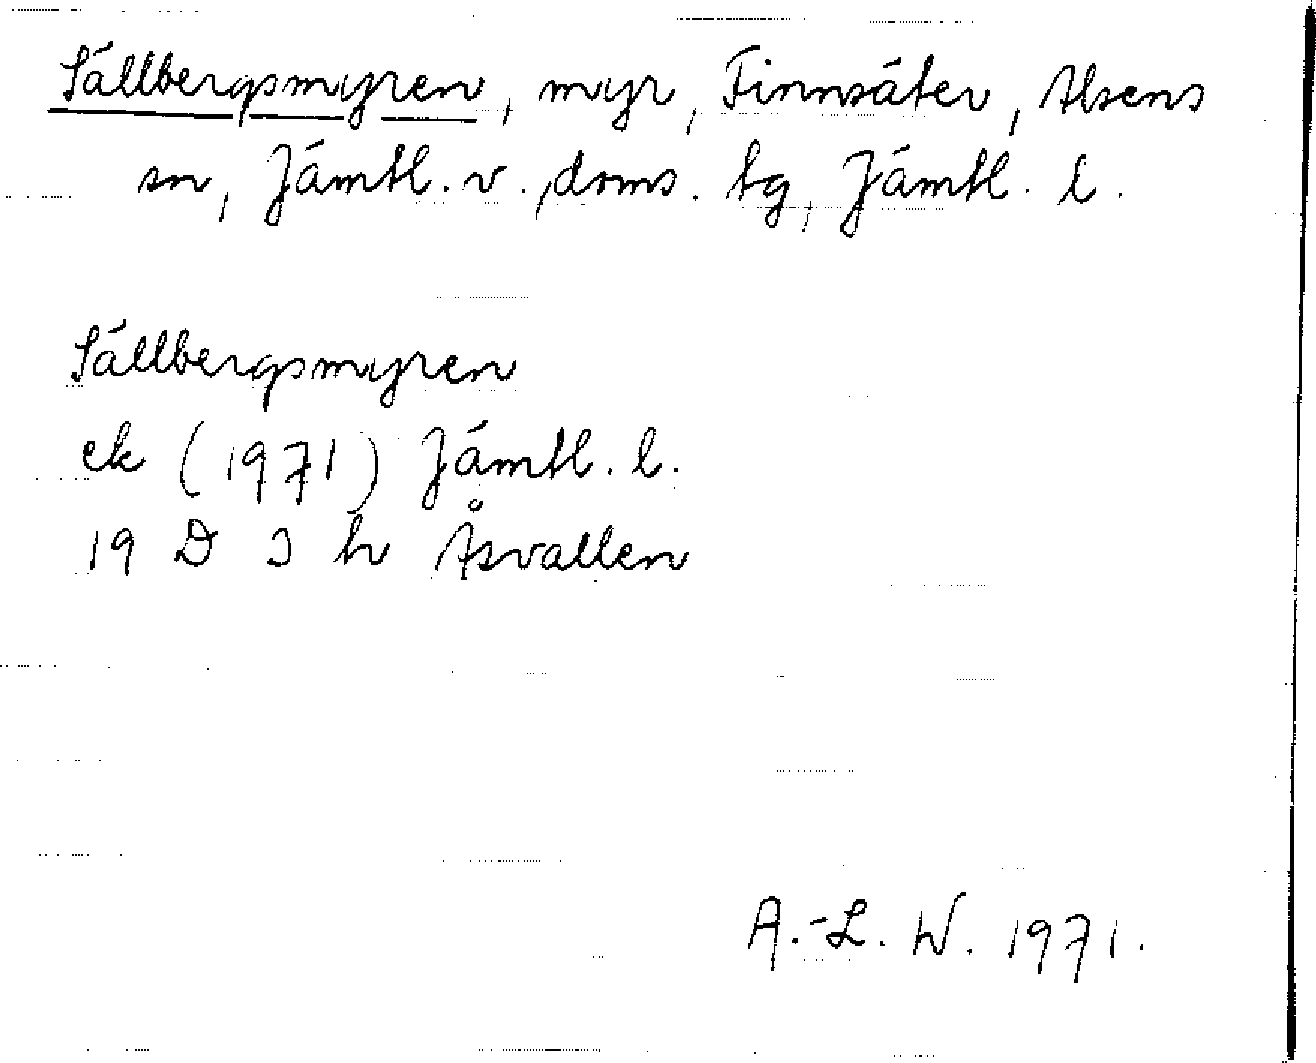 Sällbergsmyren, myr, Finnsäter, Alsens
sn, Jämtl. v., doms. tg, Jämtl. l.
Sällbergsmyren
ek (1971) Jämtl. l.
19 D 3 h Åsvallen
A.-L. W. 1971.